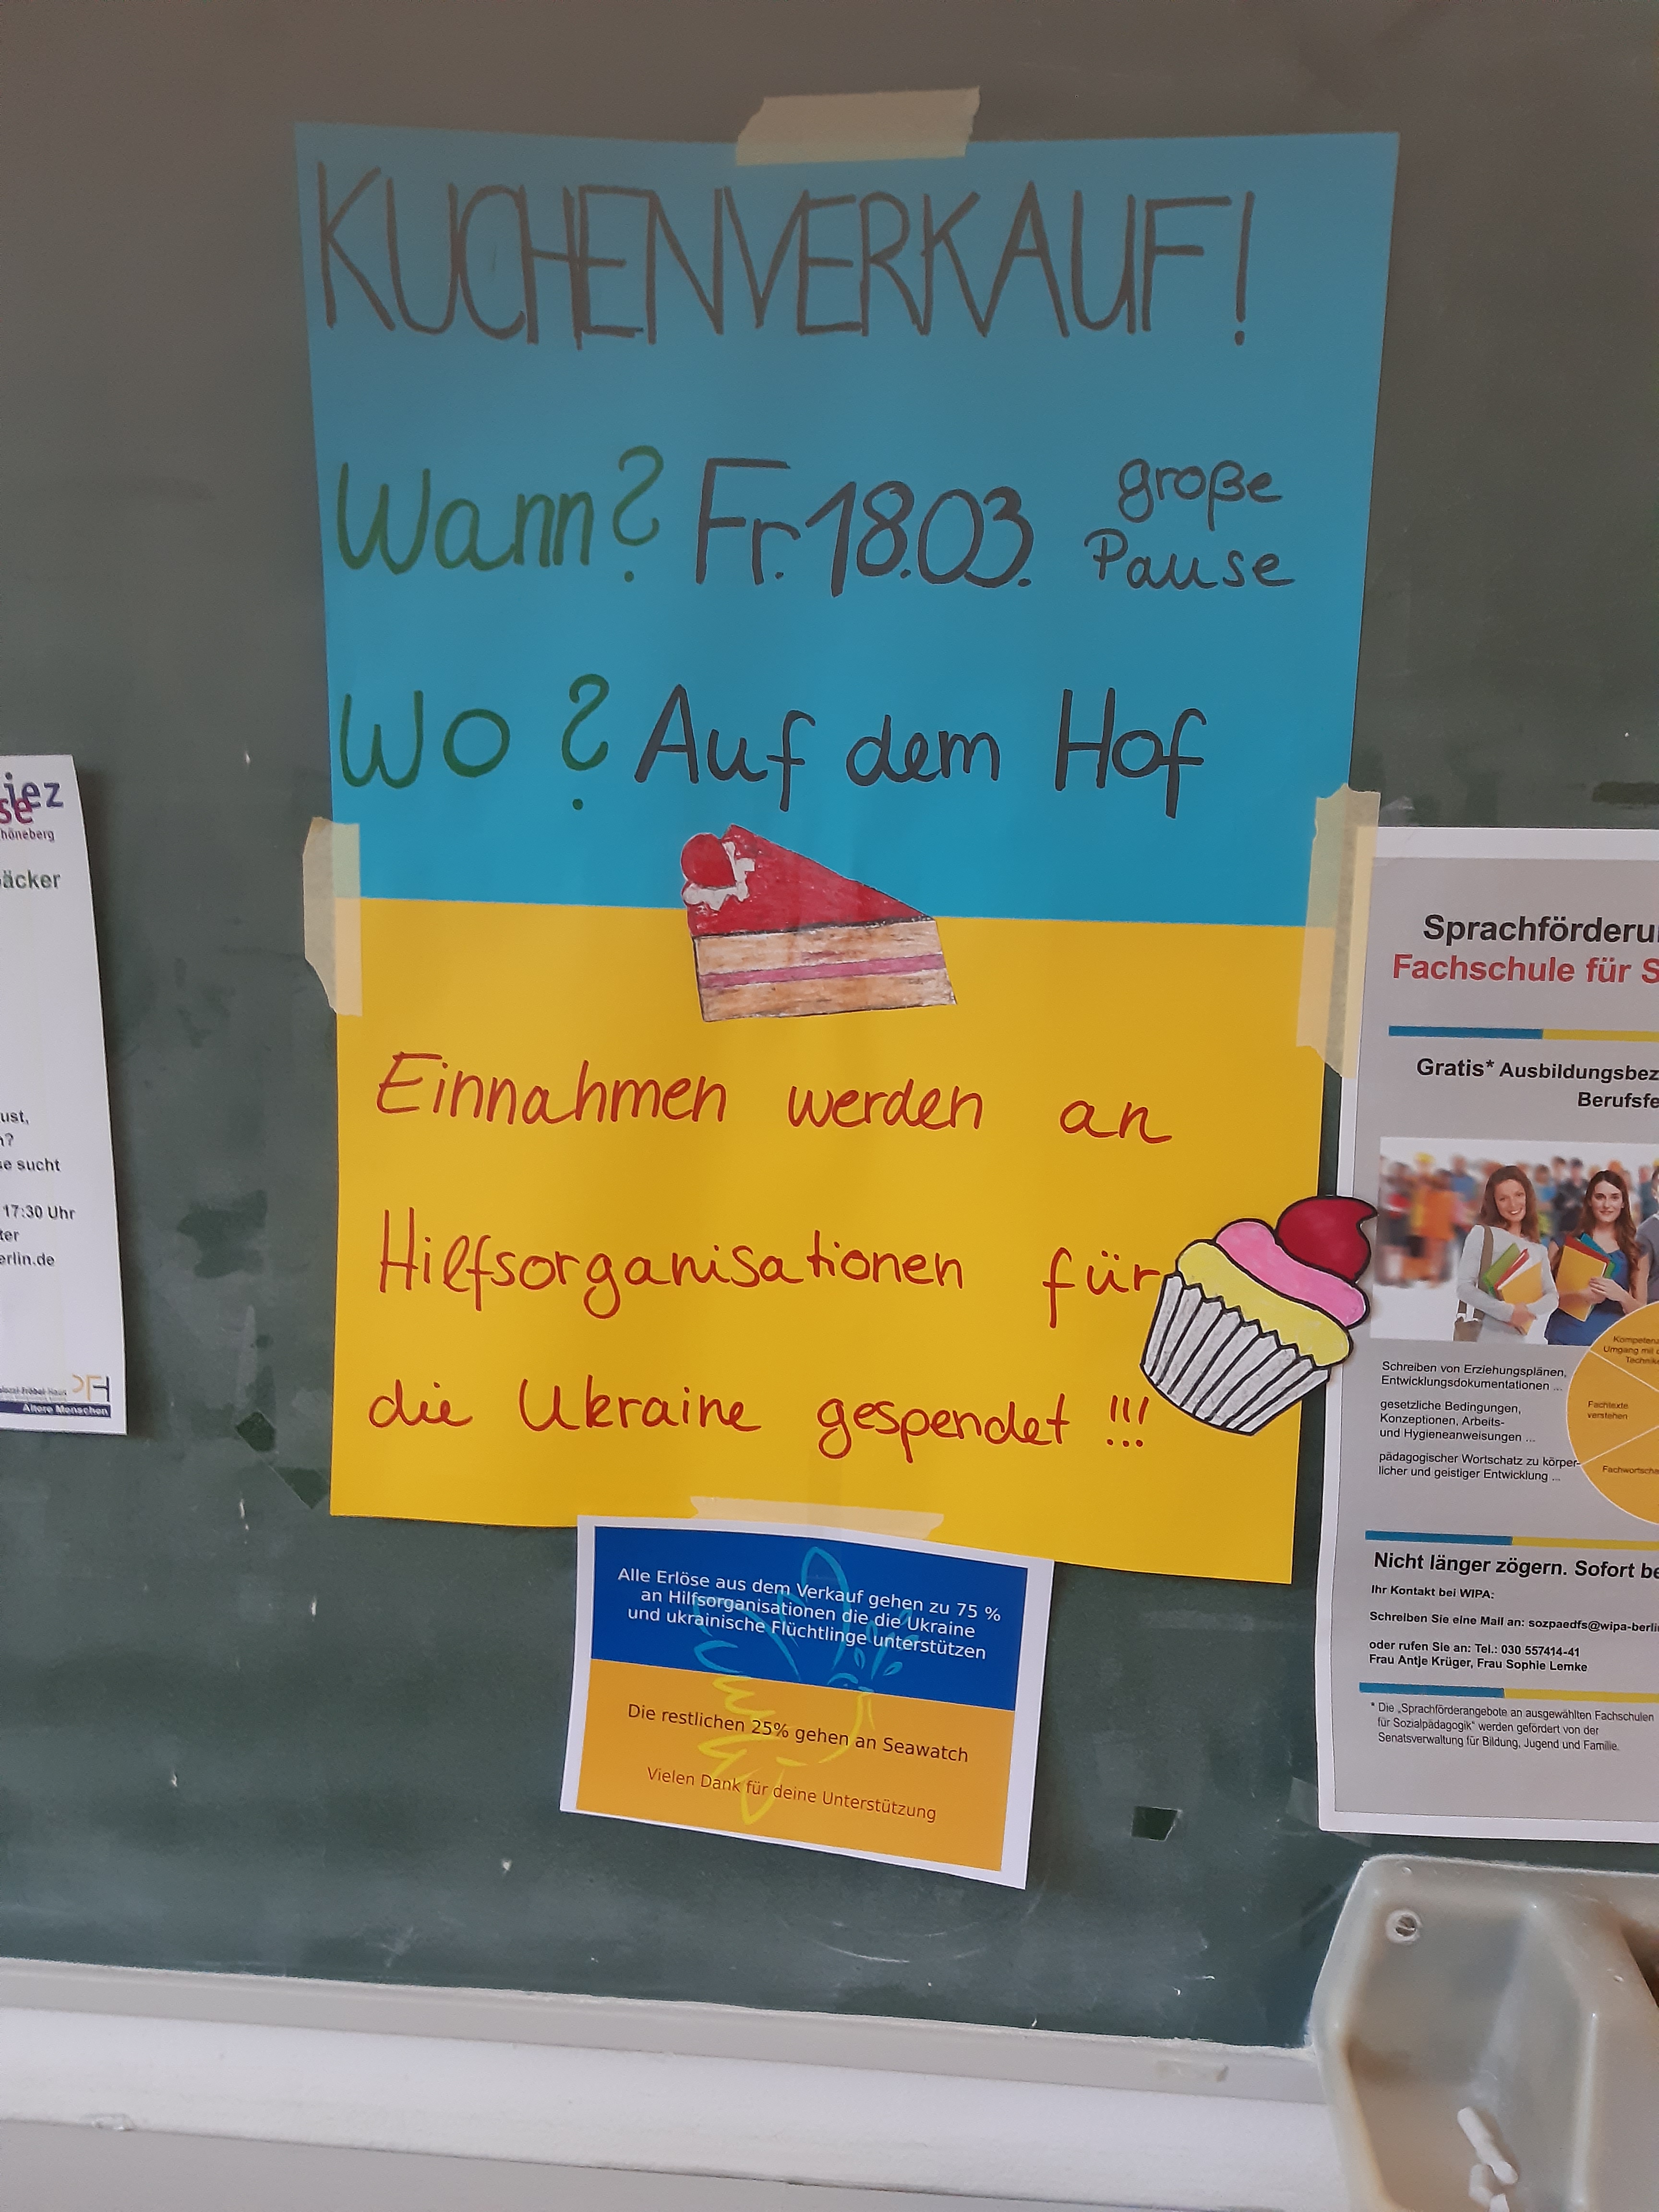 KUCHENVERKAUF!
Wann? Fr. 18.03. große Pause
Wo? Auf dem Hof
Einnahmen werden an
Hilfsorganisationen für
die Ukraine gespendet !!!
Alle Erlöse aus dem Verkauf gehen zu 75 %
an Hilfsorganisationen die die Ukraine
und ukrainische Flüchtlinge unterstützen
Die restlichen 25% gehen an Seawatch
Vielen Dank für deine Unterstützung
iez
se
höneberg
äcker
ust,
n?
se sucht
17:30 Uhr
ter
erlin.de
PFH
Ältere Menschen
Sprachförderu
Fachschule für S
Gratis* Ausbildungsbez
Berufsfe
Kompetenz
Umgang mit
Technik
Schreiben von Erziehungsplänen,
Entwicklungsdokumentationen ...
gesetzliche Bedingungen,
Konzeptionen, Arbeits-
und Hygieneanweisungen ...
Fachtexte
verstehen
pädagogischer Wortschatz zu körper-
licher und geistiger Entwicklung ...
Fachwortscha
Nicht länger zögern. Sofort be
Ihr Kontakt bei WIPA:
Schreiben Sie eine Mail an: sozpaedfs@wipa-berli
oder rufen Sie an: Tel.: 030 557414-41
Frau Antje Krüger, Frau Sophie Lemke
* Die „Sprachförderangebote an ausgewählten Fachschulen
für Sozialpädagogik“ werden gefördert von der
Senatsverwaltung für Bildung, Jugend und Familie.